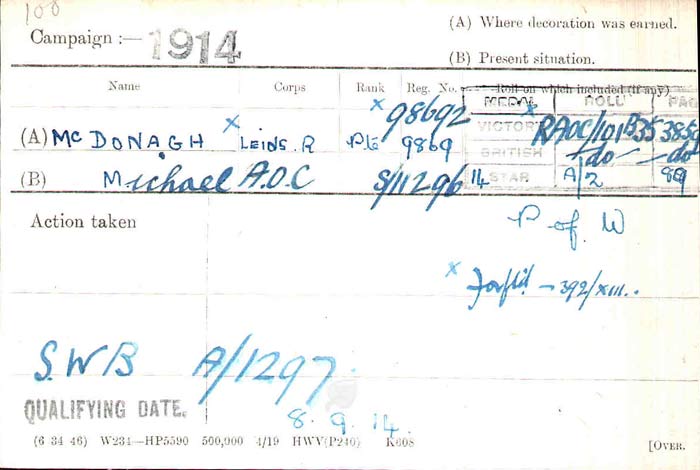 100
Campaign :— 1914
(A) Where decoration was earned.
(B) Present situation.
Name Corps Rank Reg. No. Roll on which included (if any)
MEDAL ROLL PAGE
x 98692
(A) McDONAGH x LEINS. R Pte 9869
VICTORY x RAOC/101B35 3851
BRITISH —do— —do—
(B) Michael A.O.C S/11296
14 STAR A/2 89
Action taken
P of W
x Forfeit — 392/XIII..
S.W.B A/1297.
QUALIFYING DATE. 8. 9. 14.
(6 34 46) W234—HP5590 500,000 4/19 HWV(P240) K608
[OVER.